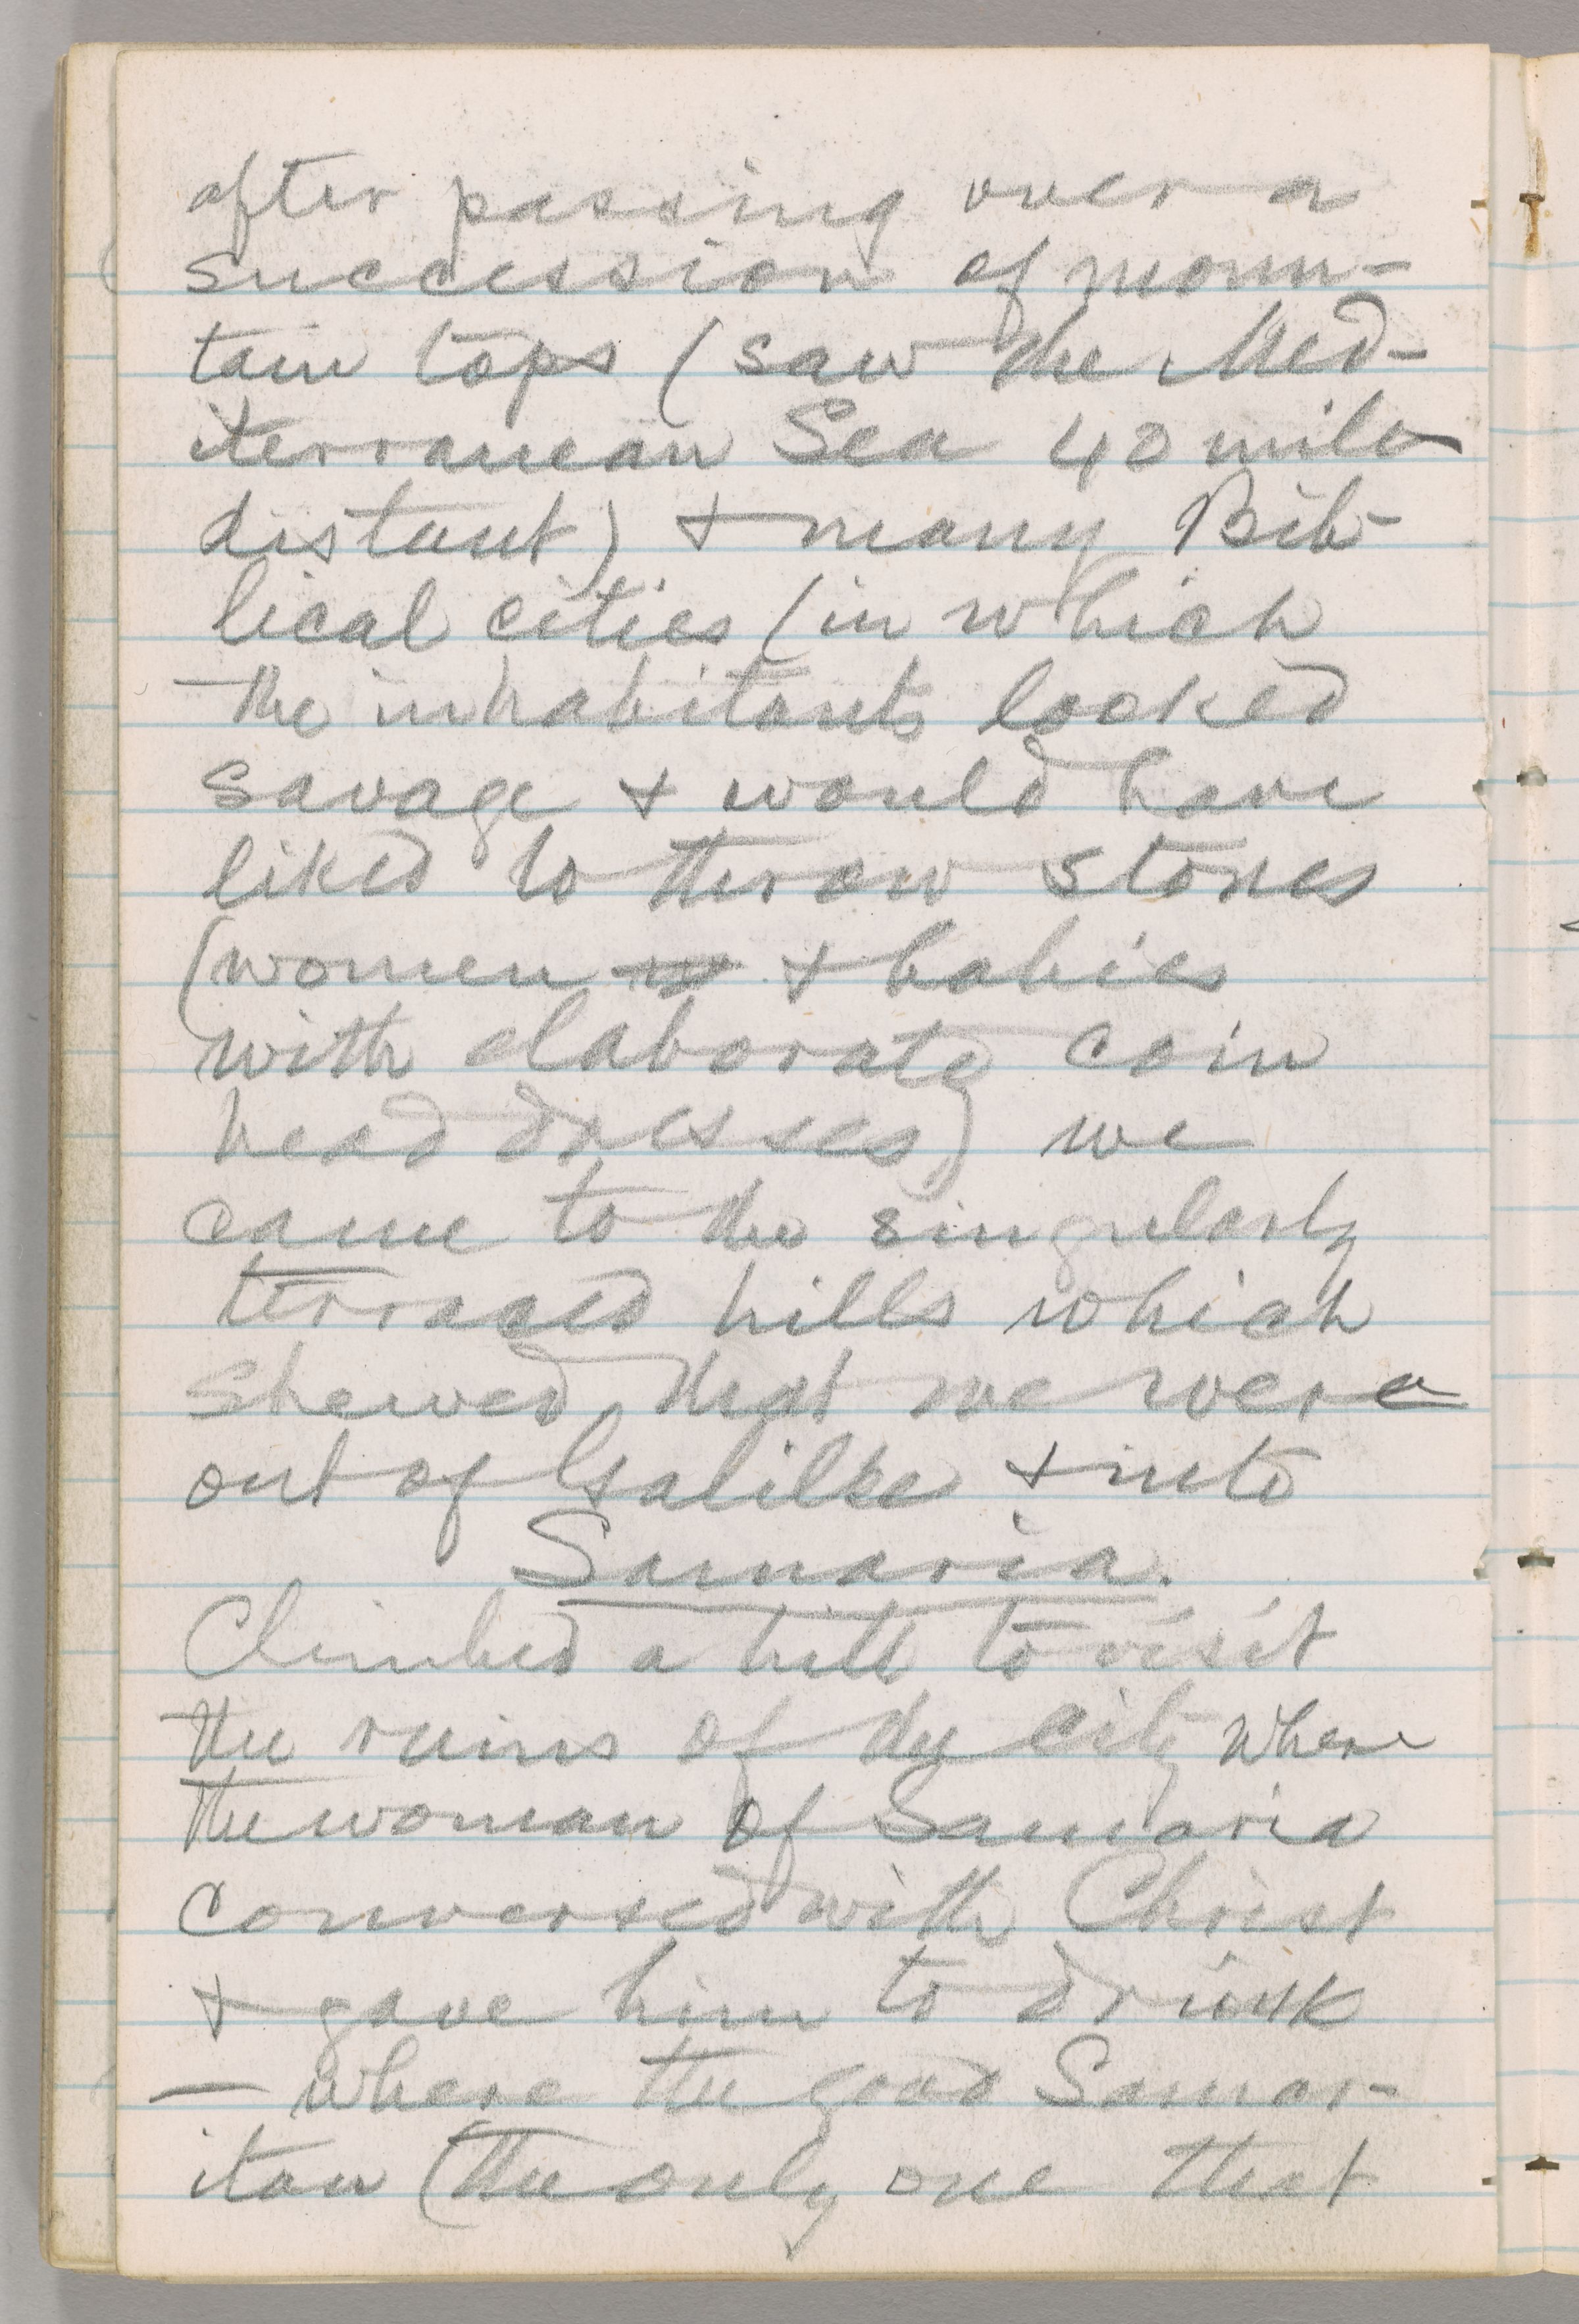 after passing over a
succession of moun-
tain tops (saw the Med-
iterranean Sea 40 miles
distant) + many Bib-
lical cities (in which
the inhabitants looked
savage + would have
liked to throw stones
(women + babies
with elaborate coin
head dresses) we
came to the singularly
terraced hills which
shewed that we were
out of Galilee + into
Samaria.
Climbed a hill to visit
the ruins of the city where
the woman of Samaria
conversed with Christ
+ gave him to drink
— where the good Samar-
itan (the only one that